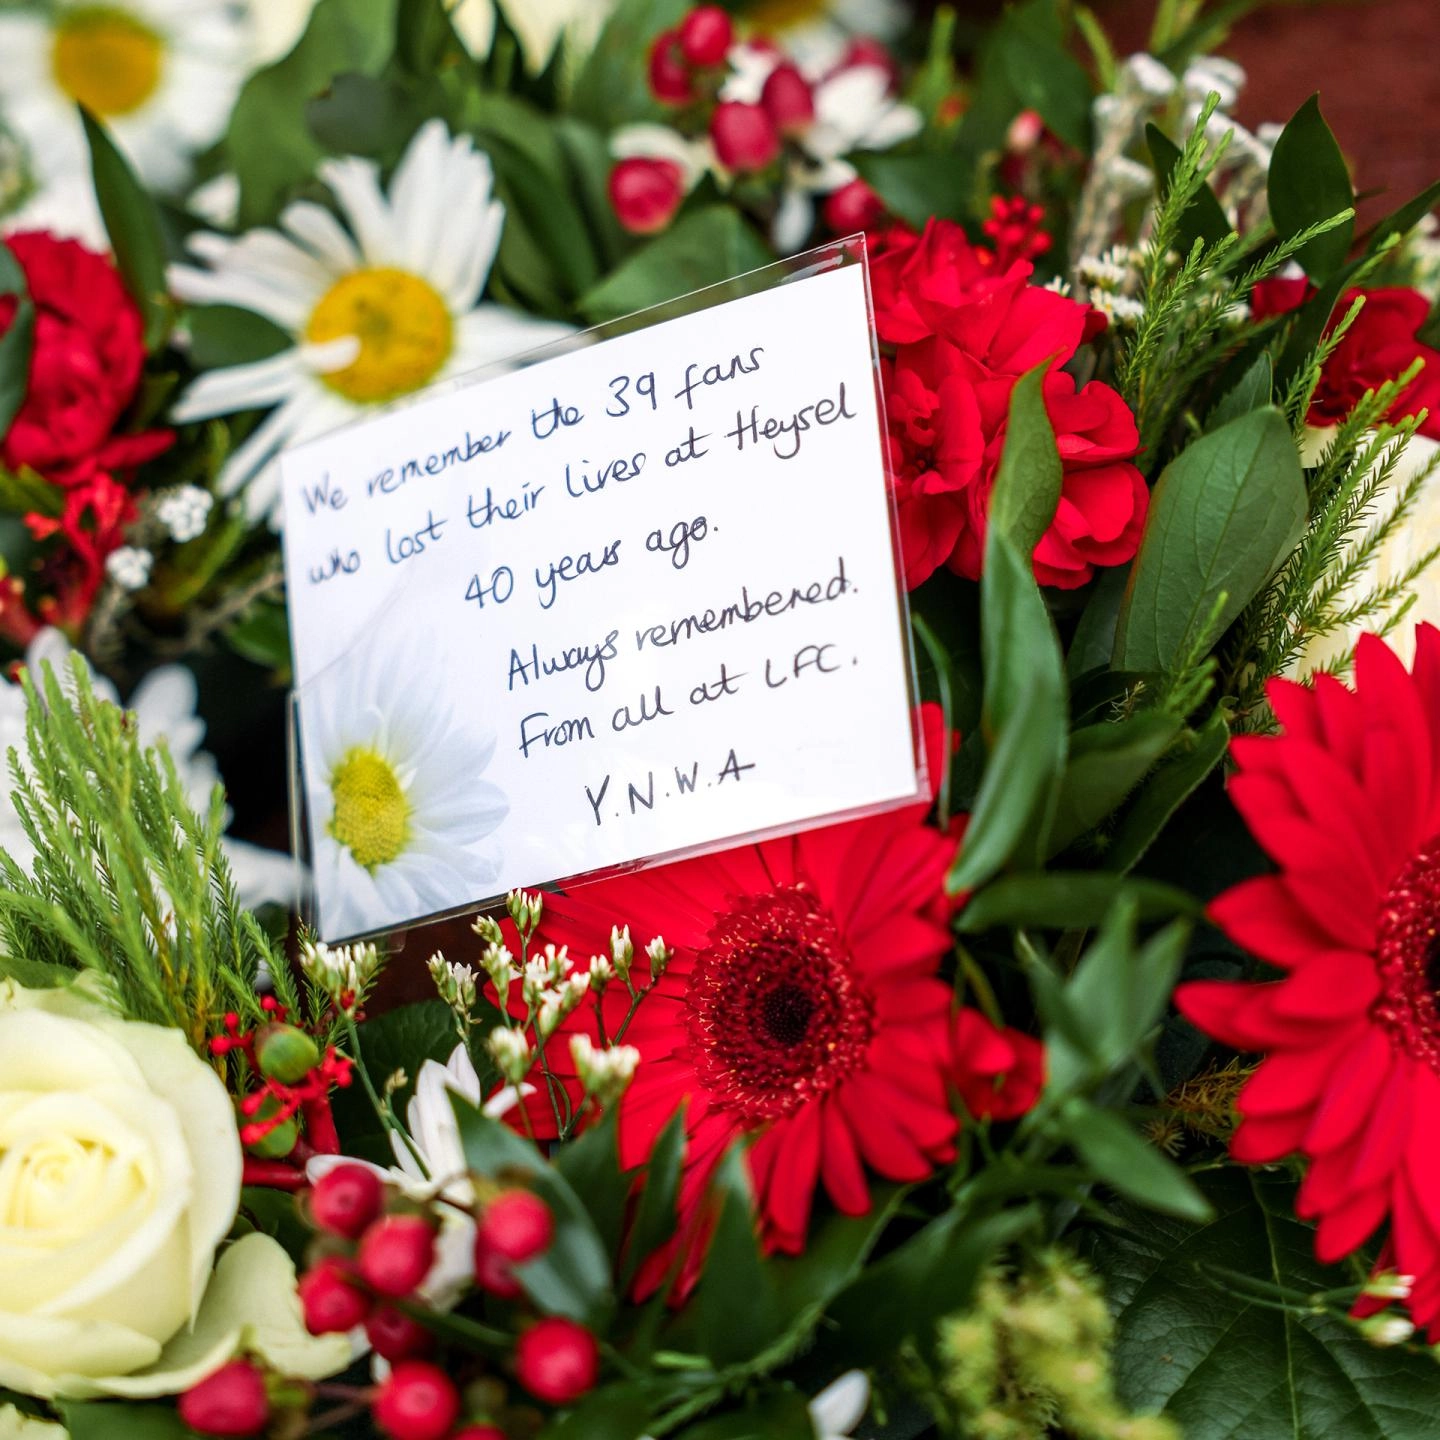 We remember the 39 fans
who lost their lives at Heysel
40 years ago.
Always remembered.
From all at LFC.
Y.N.W.A